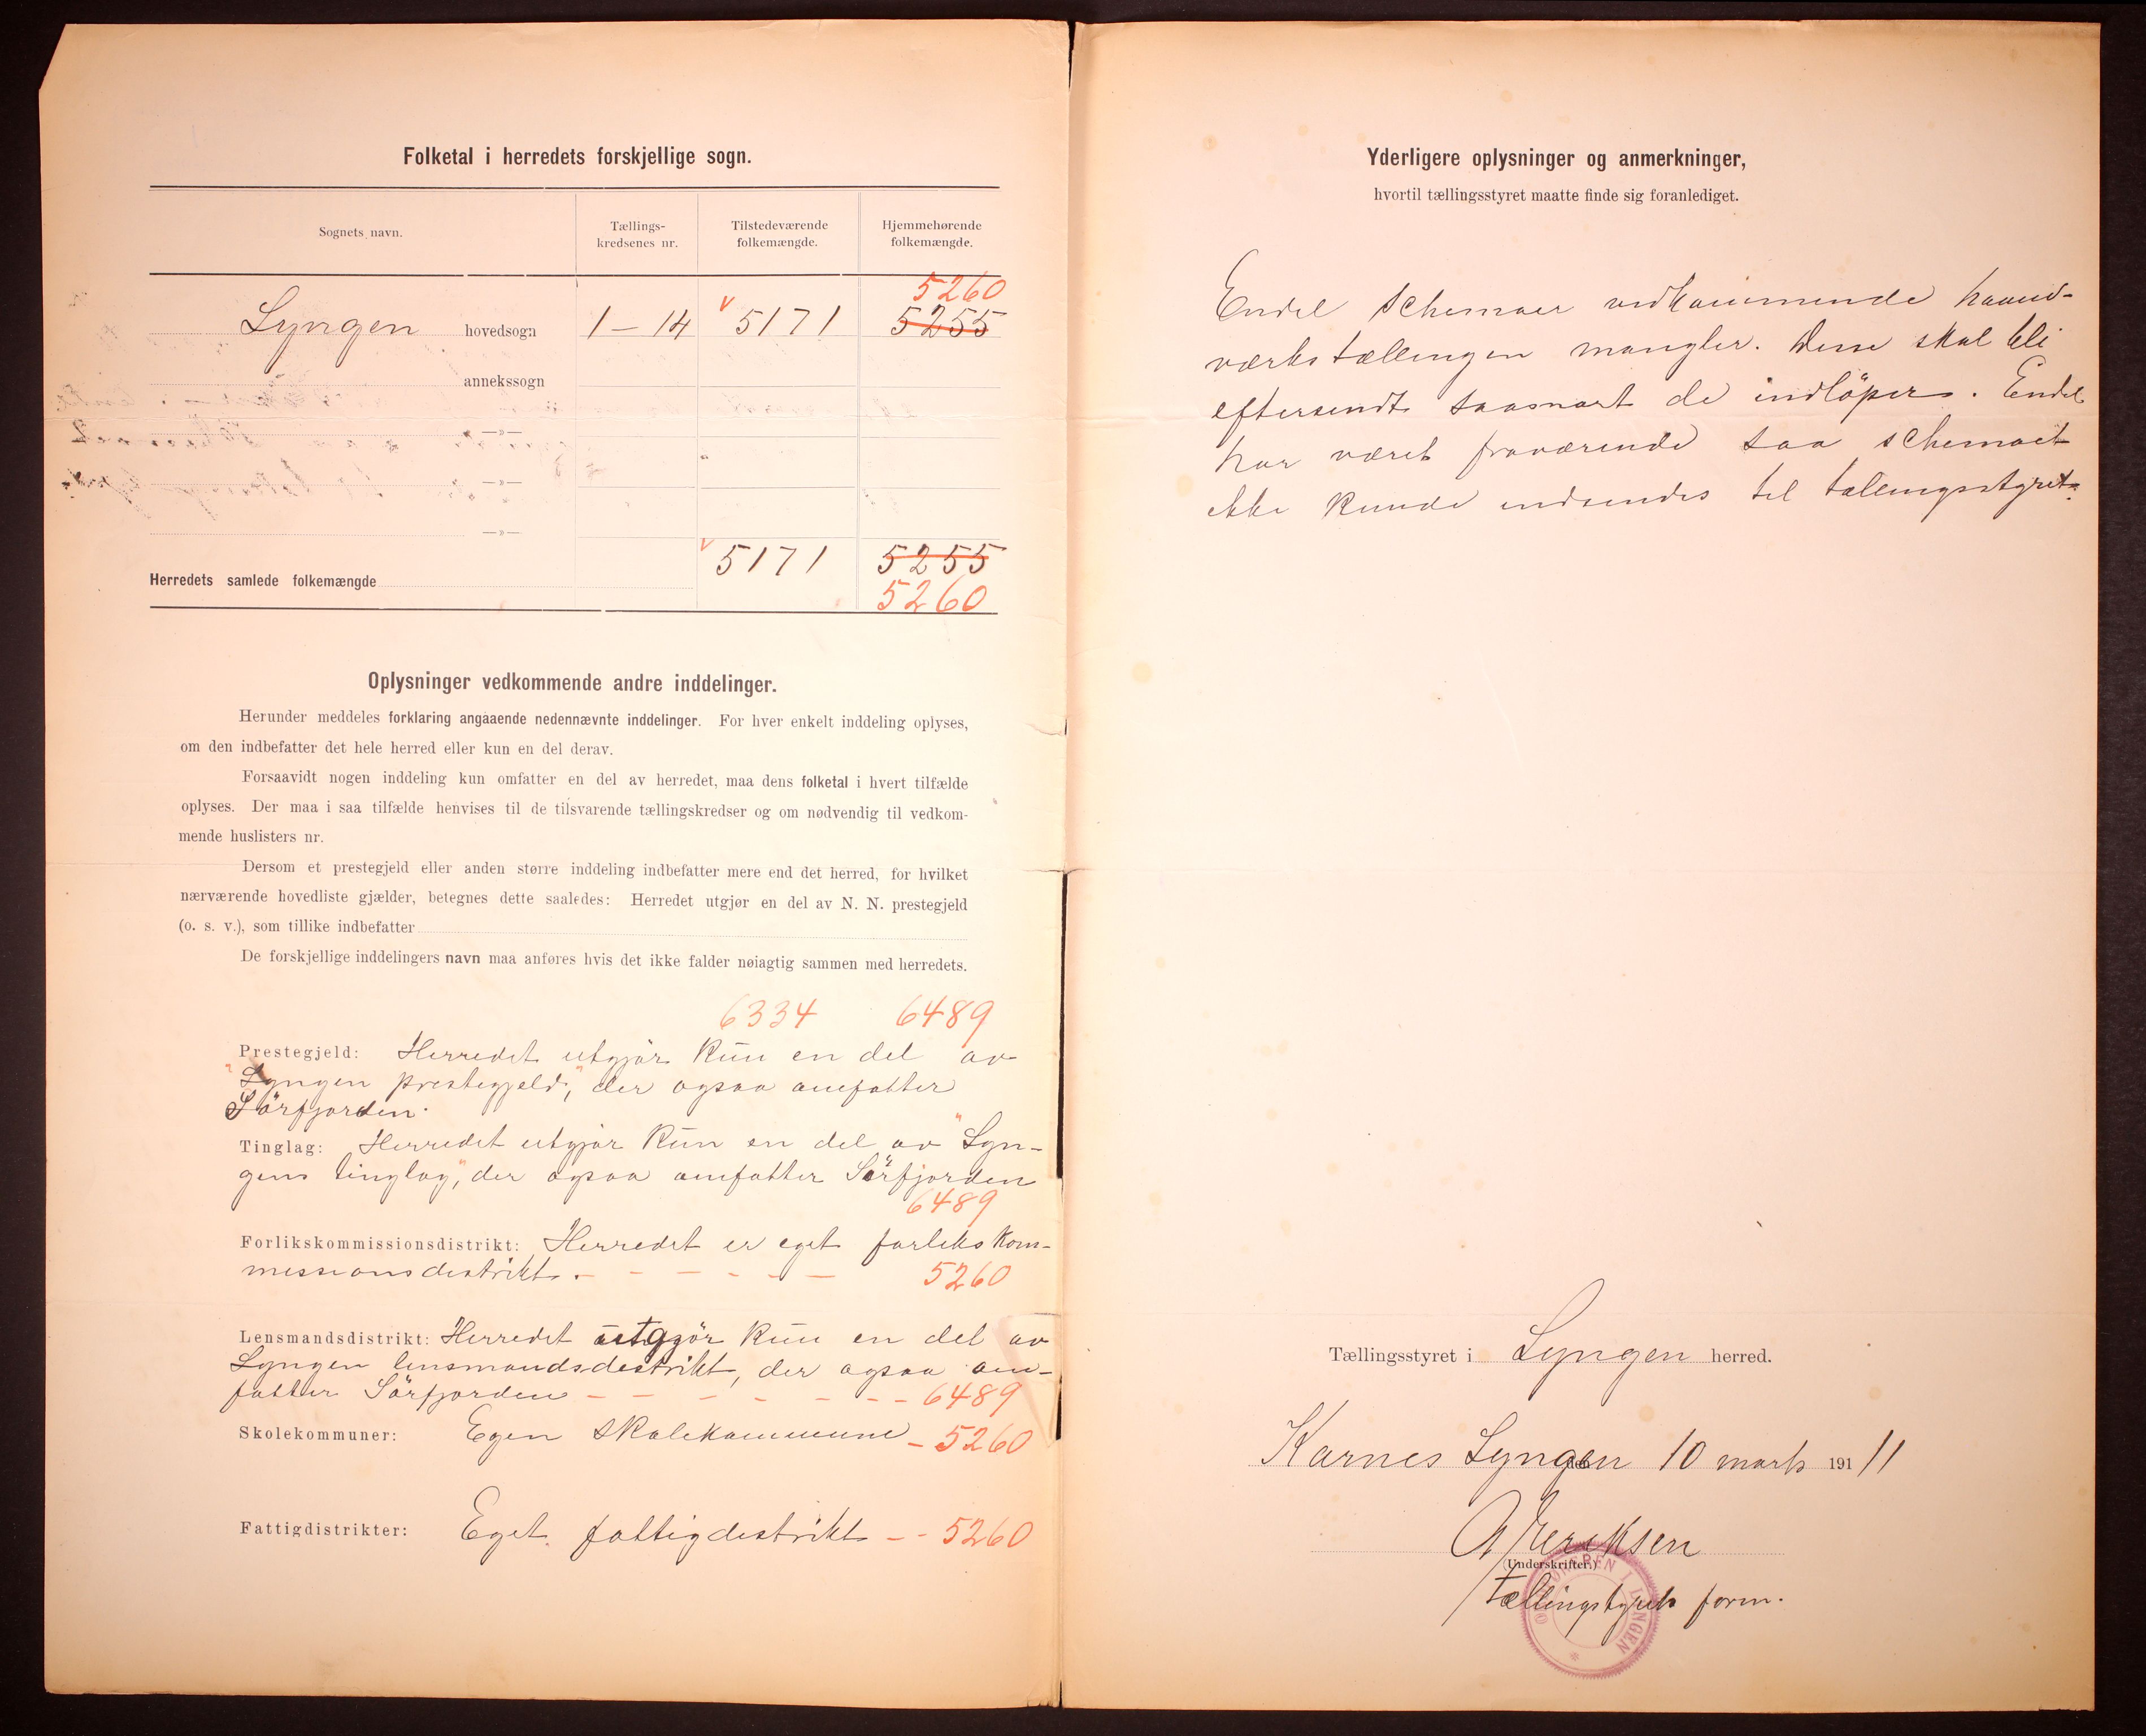 Folketal i herredets forskjellige sogn.
Sognets navn.
Tællings-
kredsenes nr.
Tilstedeværende
folkemængde.
Hjemmehørende
folkemængde.
5260
Lyngen hovedsogn 1 – 14 5171 5255
annekssogn
—»—
—»—
—»—
5171 5255
Herredets samlede folkemængde
5260
Oplysninger vedkommende andre inddelinger.
Herunder meddeles forklaring angaaende nedennævnte inddelinger. For hver enkelt inddeling oplyses,
om den indbefatter det hele herred eller kun en del derav.
Forsaavidt nogen inddeling kun omfatter en del av herredet, maa dens folketal i hvert tilfælde
oplyses. Der maa i saa tilfælde henvises til de tilsvarende tællingskredser og om nødvendig til vedkom-
mende huslisters nr.
Dersom et prestegjeld eller anden større inddeling indbefatter mere end det herred, for hvilket
nærværende hovedliste gjælder, betegnes dette saaledes: Herredet utgjør en del av N. N. prestegjeld
(o. s. v.), som tillike indbefatter
De forskjellige inddelingers navn maa anføres hvis det ikke falder nøiagtig sammen med herredets.
6334 6489
Prestegjeld: Herredet utgjör kun en del av
"Lyngen prestegjeld", der ogsaa omfatter
Sörfjorden.
Tinglag: Herredet utgjör kun en del av "Lyn-
gens tinglag", der ogsaa omfatter Sörfjorden
6489
Forlikskommissionsdistrikt: Herredet er eget forlikskom-
missionsdistrikt. – – – – – – 5260
Lensmandsdistrikt: Herredet utgjör kun en del av
Lyngen lensmandsdistrikt, der ogsaa om-
fatter Sörfjorden – – – – – – 6489
Skolekommuner: Egen skolekommune – 5260
Fattigdistrikter: Eget fattigdistrikt – – 5260
Yderligere oplysninger og anmerkninger,
hvortil tællingsstyret maatte finde sig foranlediget.
Endel schemaer vedkommende haand-
værkstællingen mangler. Disse skal bli
eftersendt saasnart de indlöper. Endel
har været fraværende saa schemaet
ikke kunde indsendes til tællingsstyret.
Tællingsstyret i Lyngen herred.
Karnes Lyngen den 10 marts 1911
Eriksen
(Underskrifter.)
Tællingsstyrets form.
ORDFØREREN I LYNGEN